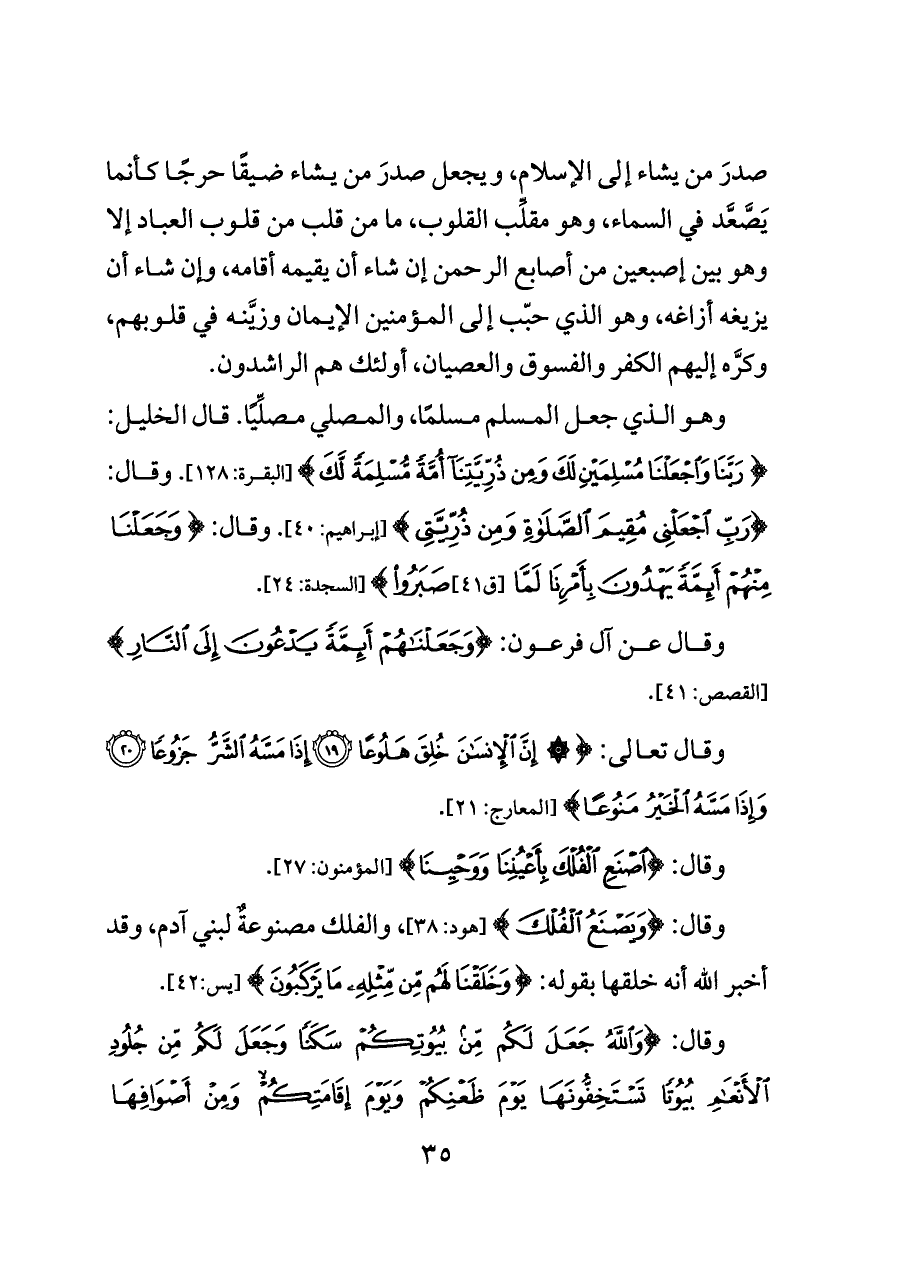 صدرَ من يشاء إلى الإسلام، ويجعل صدرَ من يشاء ضيقًا حرجًا كأنما
يَصَّعَّد في السماء، وهو مقلِّب القلوب، ما من قلب من قلوب العباد إلا
وهو بين إصبعين من أصابع الرحمن إن شاء أن يقيمه أقامه، وإن شاء أن
يزيغه أزاغه، وهو الذي حبّب إلى المؤمنين الإيمان وزيَّنه في قلوبهم،
وكرَّه إليهم الكفر والفسوق والعصيان، أولئك هم الراشدون.
وهو الذي جعل المسلم مسلمًا، والمصلي مصلِّيًا. قال الخليل:
﴿ رَبَّنَا وَٱجْعَلْنَا مُسْلِمَيْنِ لَكَ وَمِن ذُرِّيَّتِنَآ أُمَّةً مُّسْلِمَةً لَّكَ ﴾ [البقرة: ١٢٨]. وقال:
﴿رَبِّ ٱجْعَلْنِى مُقِيمَ ٱلصَّلَوٰةِ وَمِن ذُرِّيَّتِى ﴾ [إبراهيم: ٤٠]. وقال: ﴿ وَجَعَلْنَا
مِنْهُمْ أَئِمَّةً يَهْدُونَ بِأَمْرِنَا لَمَّا [ق٤١] صَبَرُوا۟ ﴾ [السجدة: ٢٤].
وقال عن آل فرعون: ﴿وَجَعَلْنَٰهُمْ أَئِمَّةً يَدْعُونَ إِلَى ٱلنَّارِ ﴾
[القصص: ٤١].
وقال تعالى: ﴿ ۞ إِنَّ ٱلْإِنسَٰنَ خُلِقَ هَلُوعًا ١٩ إِذَا مَسَّهُ ٱلشَّرُّ جَزُوعًا ٢٠
وَإِذَا مَسَّهُ ٱلْخَيْرُ مَنُوعًا﴾ [المعارج: ٢١].
وقال: ﴿ٱصْنَعِ ٱلْفُلْكَ بِأَعْيُنِنَا وَوَحْيِنَا﴾ [المؤمنون: ٢٧].
وقال: ﴿وَيَصْنَعُ ٱلْفُلْكَ ﴾ [هود: ٣٨]، والفلك مصنوعةٌ لبني آدم، وقد
أخبر الله أنه خلقها بقوله: ﴿ وَخَلَقْنَا لَهُم مِّن مِّثْلِهِۦ مَا يَرْكَبُونَ ﴾ [يس: ٤٢].
وقال: ﴿وَٱللَّهُ جَعَلَ لَكُم مِّنۢ بُيُوتِكُمْ سَكَنًا وَجَعَلَ لَكُم مِّن جُلُودِ
ٱلْأَنْعَٰمِ بُيُوتًا تَسْتَخِفُّونَهَا يَوْمَ ظَعْنِكُمْ وَيَوْمَ إِقَامَتِكُمْ ۙ وَمِنْ أَصْوَافِهَا
٣٥